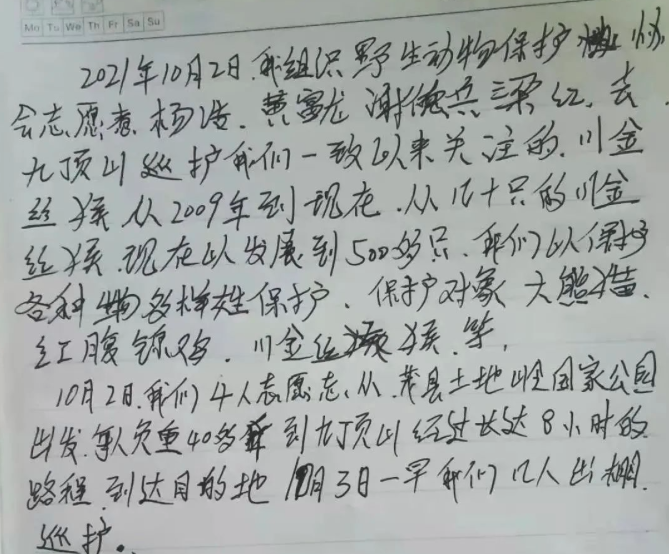 Mo Tu We Th Fr Sa Su
2021年10月2日.我组织野生动物保护 协
会志愿者.杨浩.黄富龙 谢德兵 梁红.去
九顶山巡护我们一致以来关注的.川金
丝猴从2009年到现在.从几十只的川金
丝猴.现在以发展到500多只.我们以保护
各种物多样性保护.保护对象 大熊猫.
红腹锦鸡.川金丝猴.等,
10月2日.我们4人志愿志.从.茂县土地岭国家公园
出发.每人负重40多斤到九顶山经过长达8小时的
路程.到达目的地 10月3日一早我们几人出棚.
巡护。